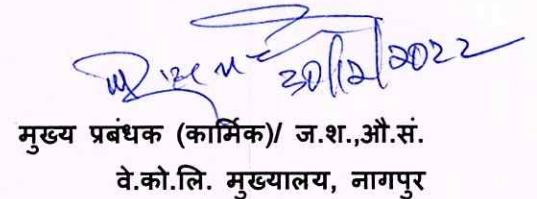 30/12/2022
मुख्य प्रबंधक (कार्मिक)/ ज.श.,औ.सं.
वे.को.लि. मुख्यालय, नागपुर